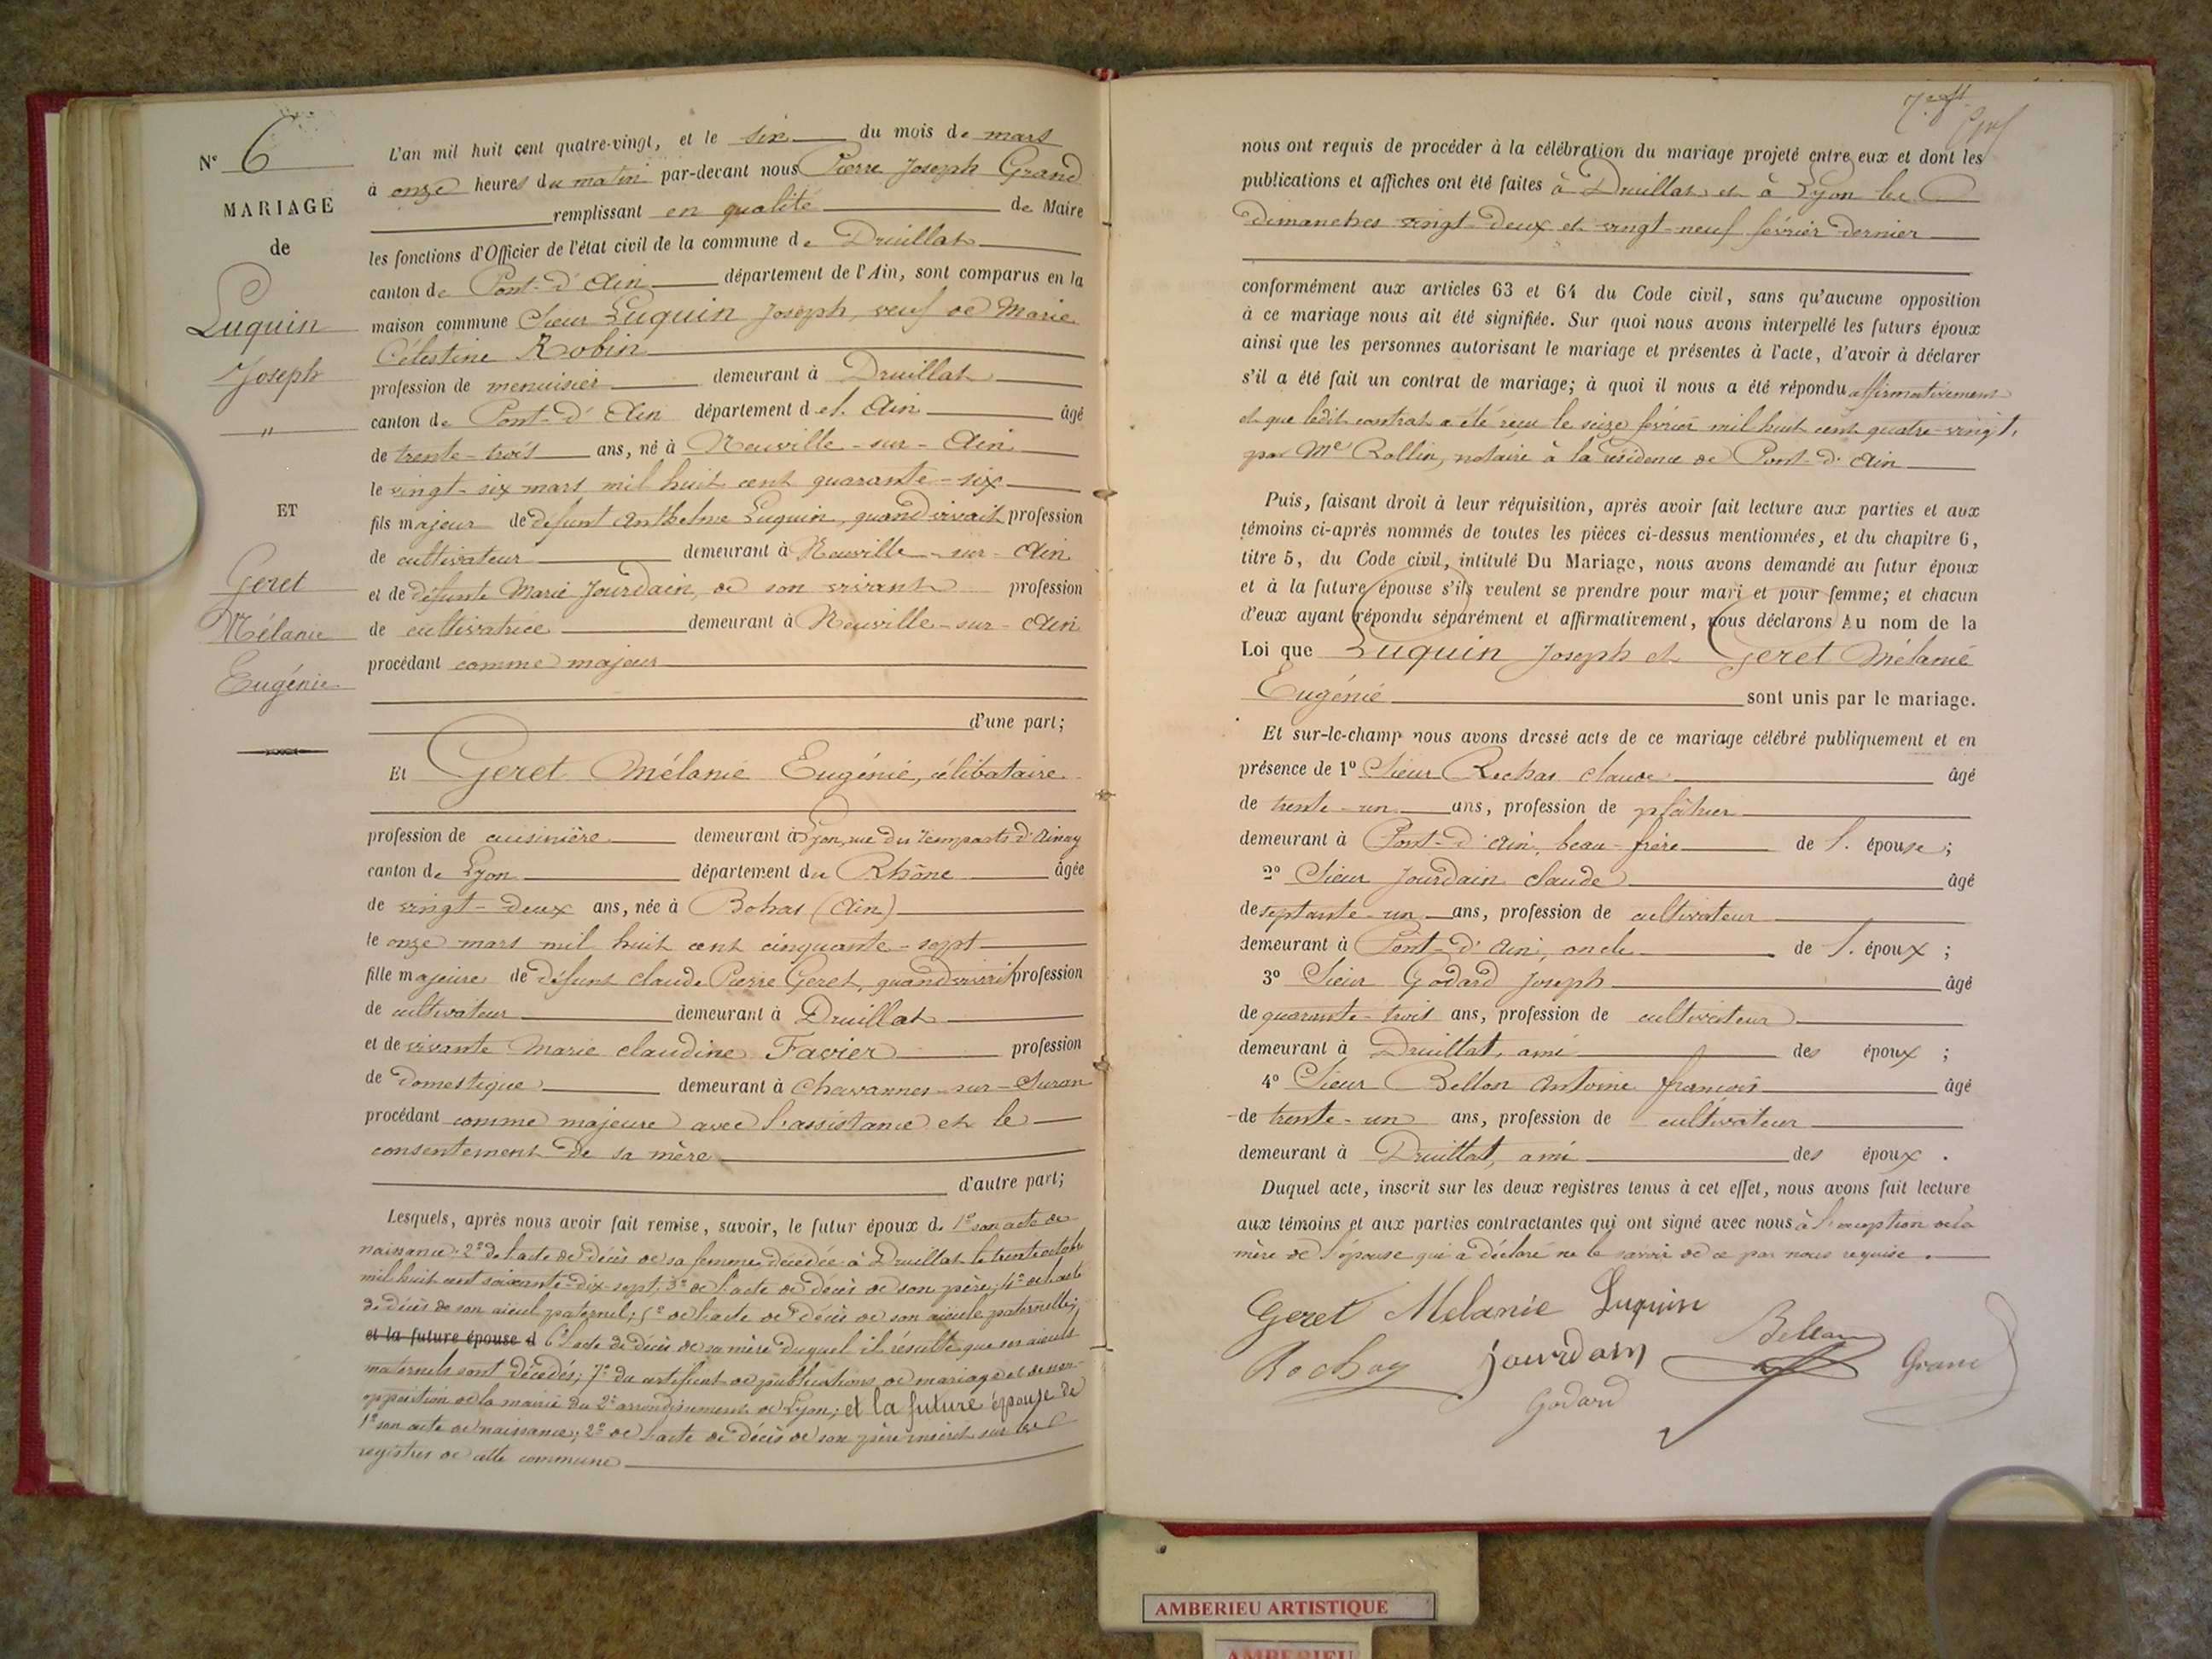 N° 6
MARIAGE
de
Luquin
Joseph
"
ET
Geret
Mélanie
Eugénie
L'an mil huit cent quatre-vingt, et le six du mois de mars
à onze heures du matin par-devant nous Pierre Joseph Grand
remplissant en qualité de Maire
les fonctions d'Officier de l'état civil de la commune de Druillat
canton de Pont-d'Ain département de l'Ain, sont comparus en la
maison commune Sieur Luquin Joseph, veuf de Marie
Célestine Robin
profession de menuisier demeurant à Druillat
canton de Pont-d'Ain département de l'Ain âgé
de trente-trois ans, né à Neuville-sur-Ain
le vingt-six mars mil huit cent quarante-six
fils majeur de défunt Anthelme Luquin, quand vivait profession
de cultivateur demeurant à Neuville-sur-Ain
et de défunte Marie Jourdain, de son vivant profession
de cultivatrice demeurant à Neuville-sur-Ain
procédant comme majeur
d'une part;
Et Geret Mélanie Eugénie, célibataire
profession de cuisinière demeurant à Lyon, rue des remparts d'Ainay
canton de Lyon département du Rhône âgée
de vingt-deux ans, née à Bohas (Ain)
le onze mars mil huit cent cinquante-sept
fille majeure de défunt Claude Pierre Geret, quand vivait profession
de cultivateur demeurant à Druillat
et de vivante Marie Claudine Favier profession
de domestique demeurant à Chavannes-sur-Suran
procédant comme majeure avec l'assistance et le
consentement de sa mère
d'autre part;
Lesquels, après nous avoir fait remise, savoir, le futur époux de 1° son acte de
naissance; 2° de l'acte de décès de sa femme décédée à Druillat le trente octobre
mil huit cent soixante-dix-sept; 3° de l'acte de décès de son père; 4° de l'acte
de décès de son aïeul paternel; 5° de l'acte de décès de son aïeule paternelle;
et la future épouse d 6° l'acte de décès de sa mère duquel il résulte que ses aïeuls
maternels sont décédés; 7° du certificat de publications de mariage et de non-
opposition de la mairie du 2e arrondissement de Lyon; et la future épouse de
1° son acte de naissance; 2° de l'acte de décès de son père inscrit sur les
registres de cette commune
nous ont requis de procéder à la célébration du mariage projeté entre eux et dont les
publications et affiches ont été faites à Druillat et à Lyon les
dimanches vingt-deux et vingt-neuf février dernier
conformément aux articles 63 et 64 du Code civil, sans qu'aucune opposition
à ce mariage nous ait été signifiée. Sur quoi nous avons interpellé les futurs époux
ainsi que les personnes autorisant le mariage et présentes à l'acte, d'avoir à déclarer
s'il a été fait un contrat de mariage; à quoi il nous a été répondu affirmativement
et que ledit contrat a été reçu le seize février mil huit cent quatre-vingt,
par Me Rollin, notaire à la résidence de Pont-d'Ain
Puis, faisant droit à leur réquisition, après avoir fait lecture aux parties et aux
témoins ci-après nommés de toutes les pièces ci-dessus mentionnées, et du chapitre 6,
titre 5, du Code civil, intitulé Du Mariage, nous avons demandé au futur époux
et à la future épouse s'ils veulent se prendre pour mari et pour femme; et chacun
d'eux ayant répondu séparément et affirmativement, nous déclarons Au nom de la
Loi que Luquin Joseph et Geret Mélanie
Eugénie sont unis par le mariage.
Et sur-le-champ nous avons dressé acte de ce mariage célébré publiquement et en
présence de 1° Sieur Rochas Claude âgé
de trente-un ans, profession de plâtrier
demeurant à Pont-d'Ain, beau-frère de l'épouse;
2° Sieur Jourdain Claude âgé
de septante-un ans, profession de cultivateur
demeurant à Pont-d'Ain, oncle de l'époux;
3° Sieur Godard Joseph âgé
de quarante-trois ans, profession de cultivateur
demeurant à Druillat, ami des époux;
4° Sieur Bellon Antoine François âgé
de trente-un ans, profession de cultivateur
demeurant à Druillat, ami des époux.
Duquel acte, inscrit sur les deux registres tenus à cet effet, nous avons fait lecture
aux témoins et aux parties contractantes qui ont signé avec nous à l'exception de la
mère de l'épouse qui a déclaré ne le savoir de ce par nous requise.
Geret Melanie Luquin
Rochas Jourdain Bellon Grand
Godard
AMBERIEU ARTISTIQUE
AMBERIEU